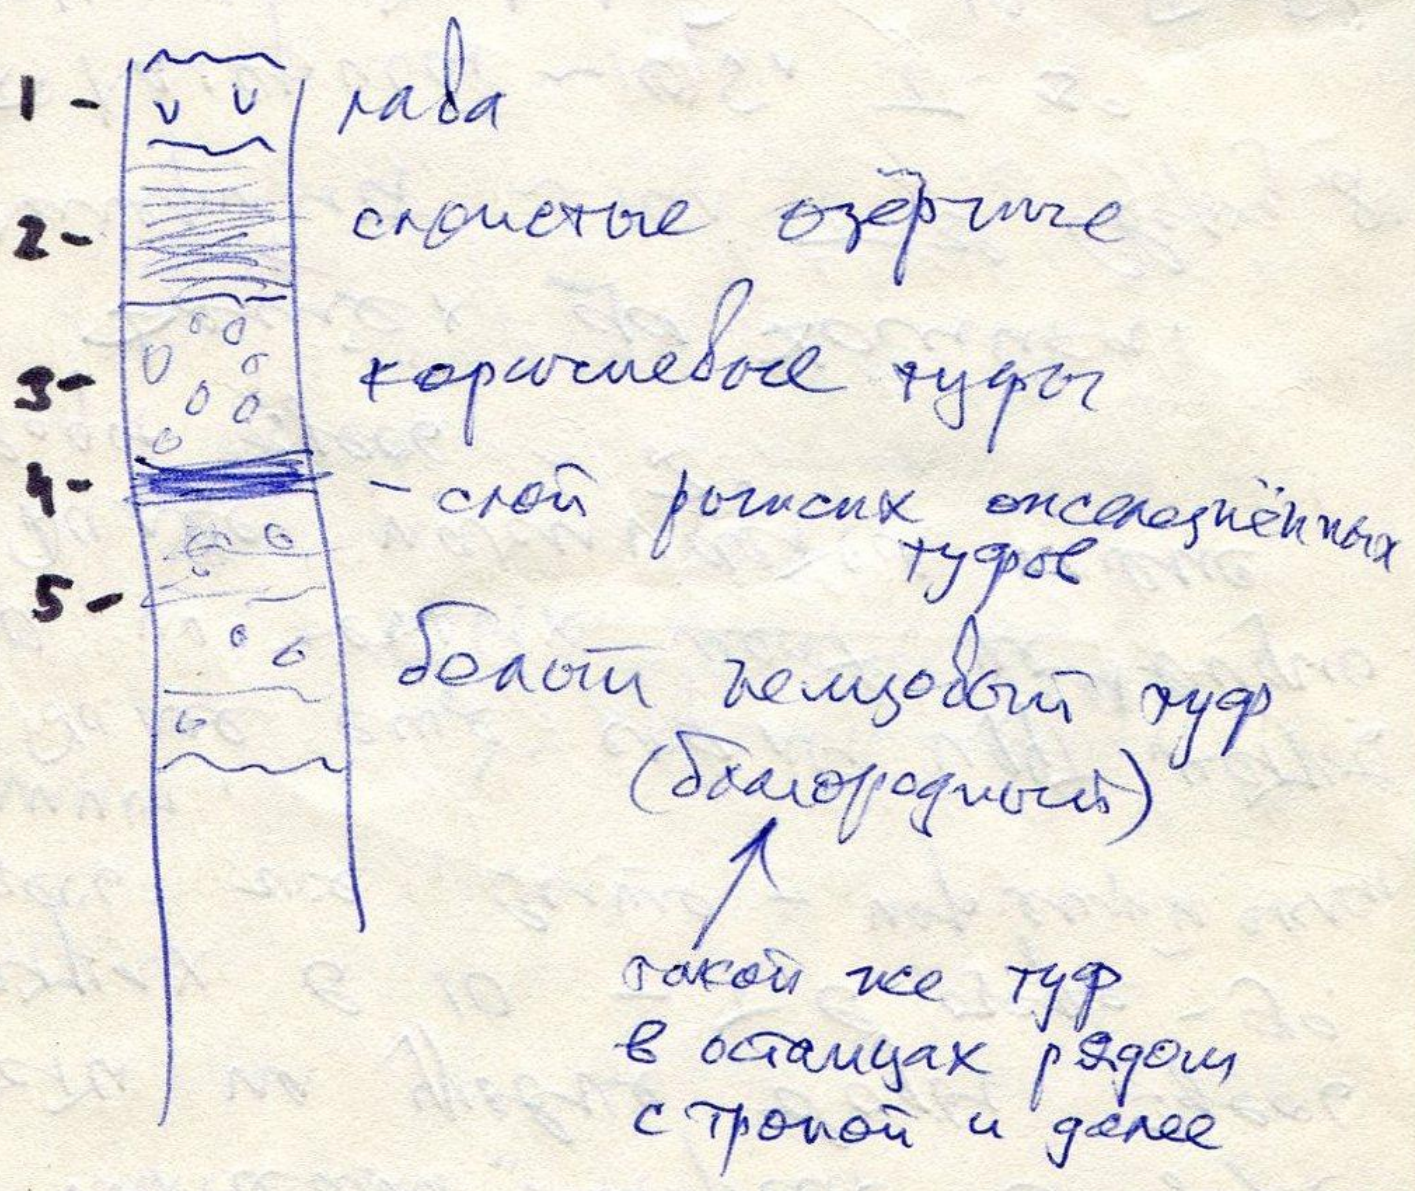 1 - лава
2 - слоистые озёрные
3 - коричневые туфы
4 - - слой рыжих ожелезнённых
туфов
5 -
белый пемзовый туф
(благородный)
такой же туф
в останцах рядом
с тропой и далее